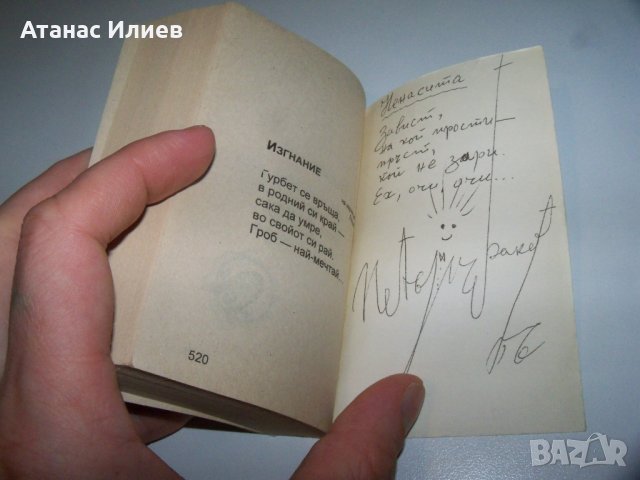 Атанас Илиев
ИЗГНАНИЕ
Гурбет се връща,
в родний си край —
сака да умре,
во свойот си рай.
Гроб — най-мечтай...
520
Ненасита
Зависит,
на кой прости —
пръст,
кой не зари.
Ех, очи, очи...
BAZAR